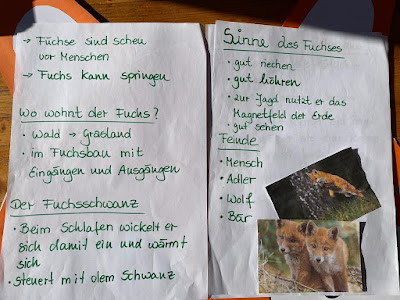 → Füchse sind scheu
vor Menschen
→ Fuchs kann springen
Wo wohnt der Fuchs?
• Wald → Grasland
• im Fuchsbau mit
Eingängen und Ausgängen
Der Fuchsschwanz
• Beim Schlafen wickelt er
sich damit ein und wärmt
sich
• Steuert mit dem Schwanz
Sinne des Fuchses
• gut riechen
• gut höhren
• zur Jagd nutzt er das
Magnetfeld der Erde
• gut sehen
Feinde
• Mensch
• Adler
• Wolf
• Bär